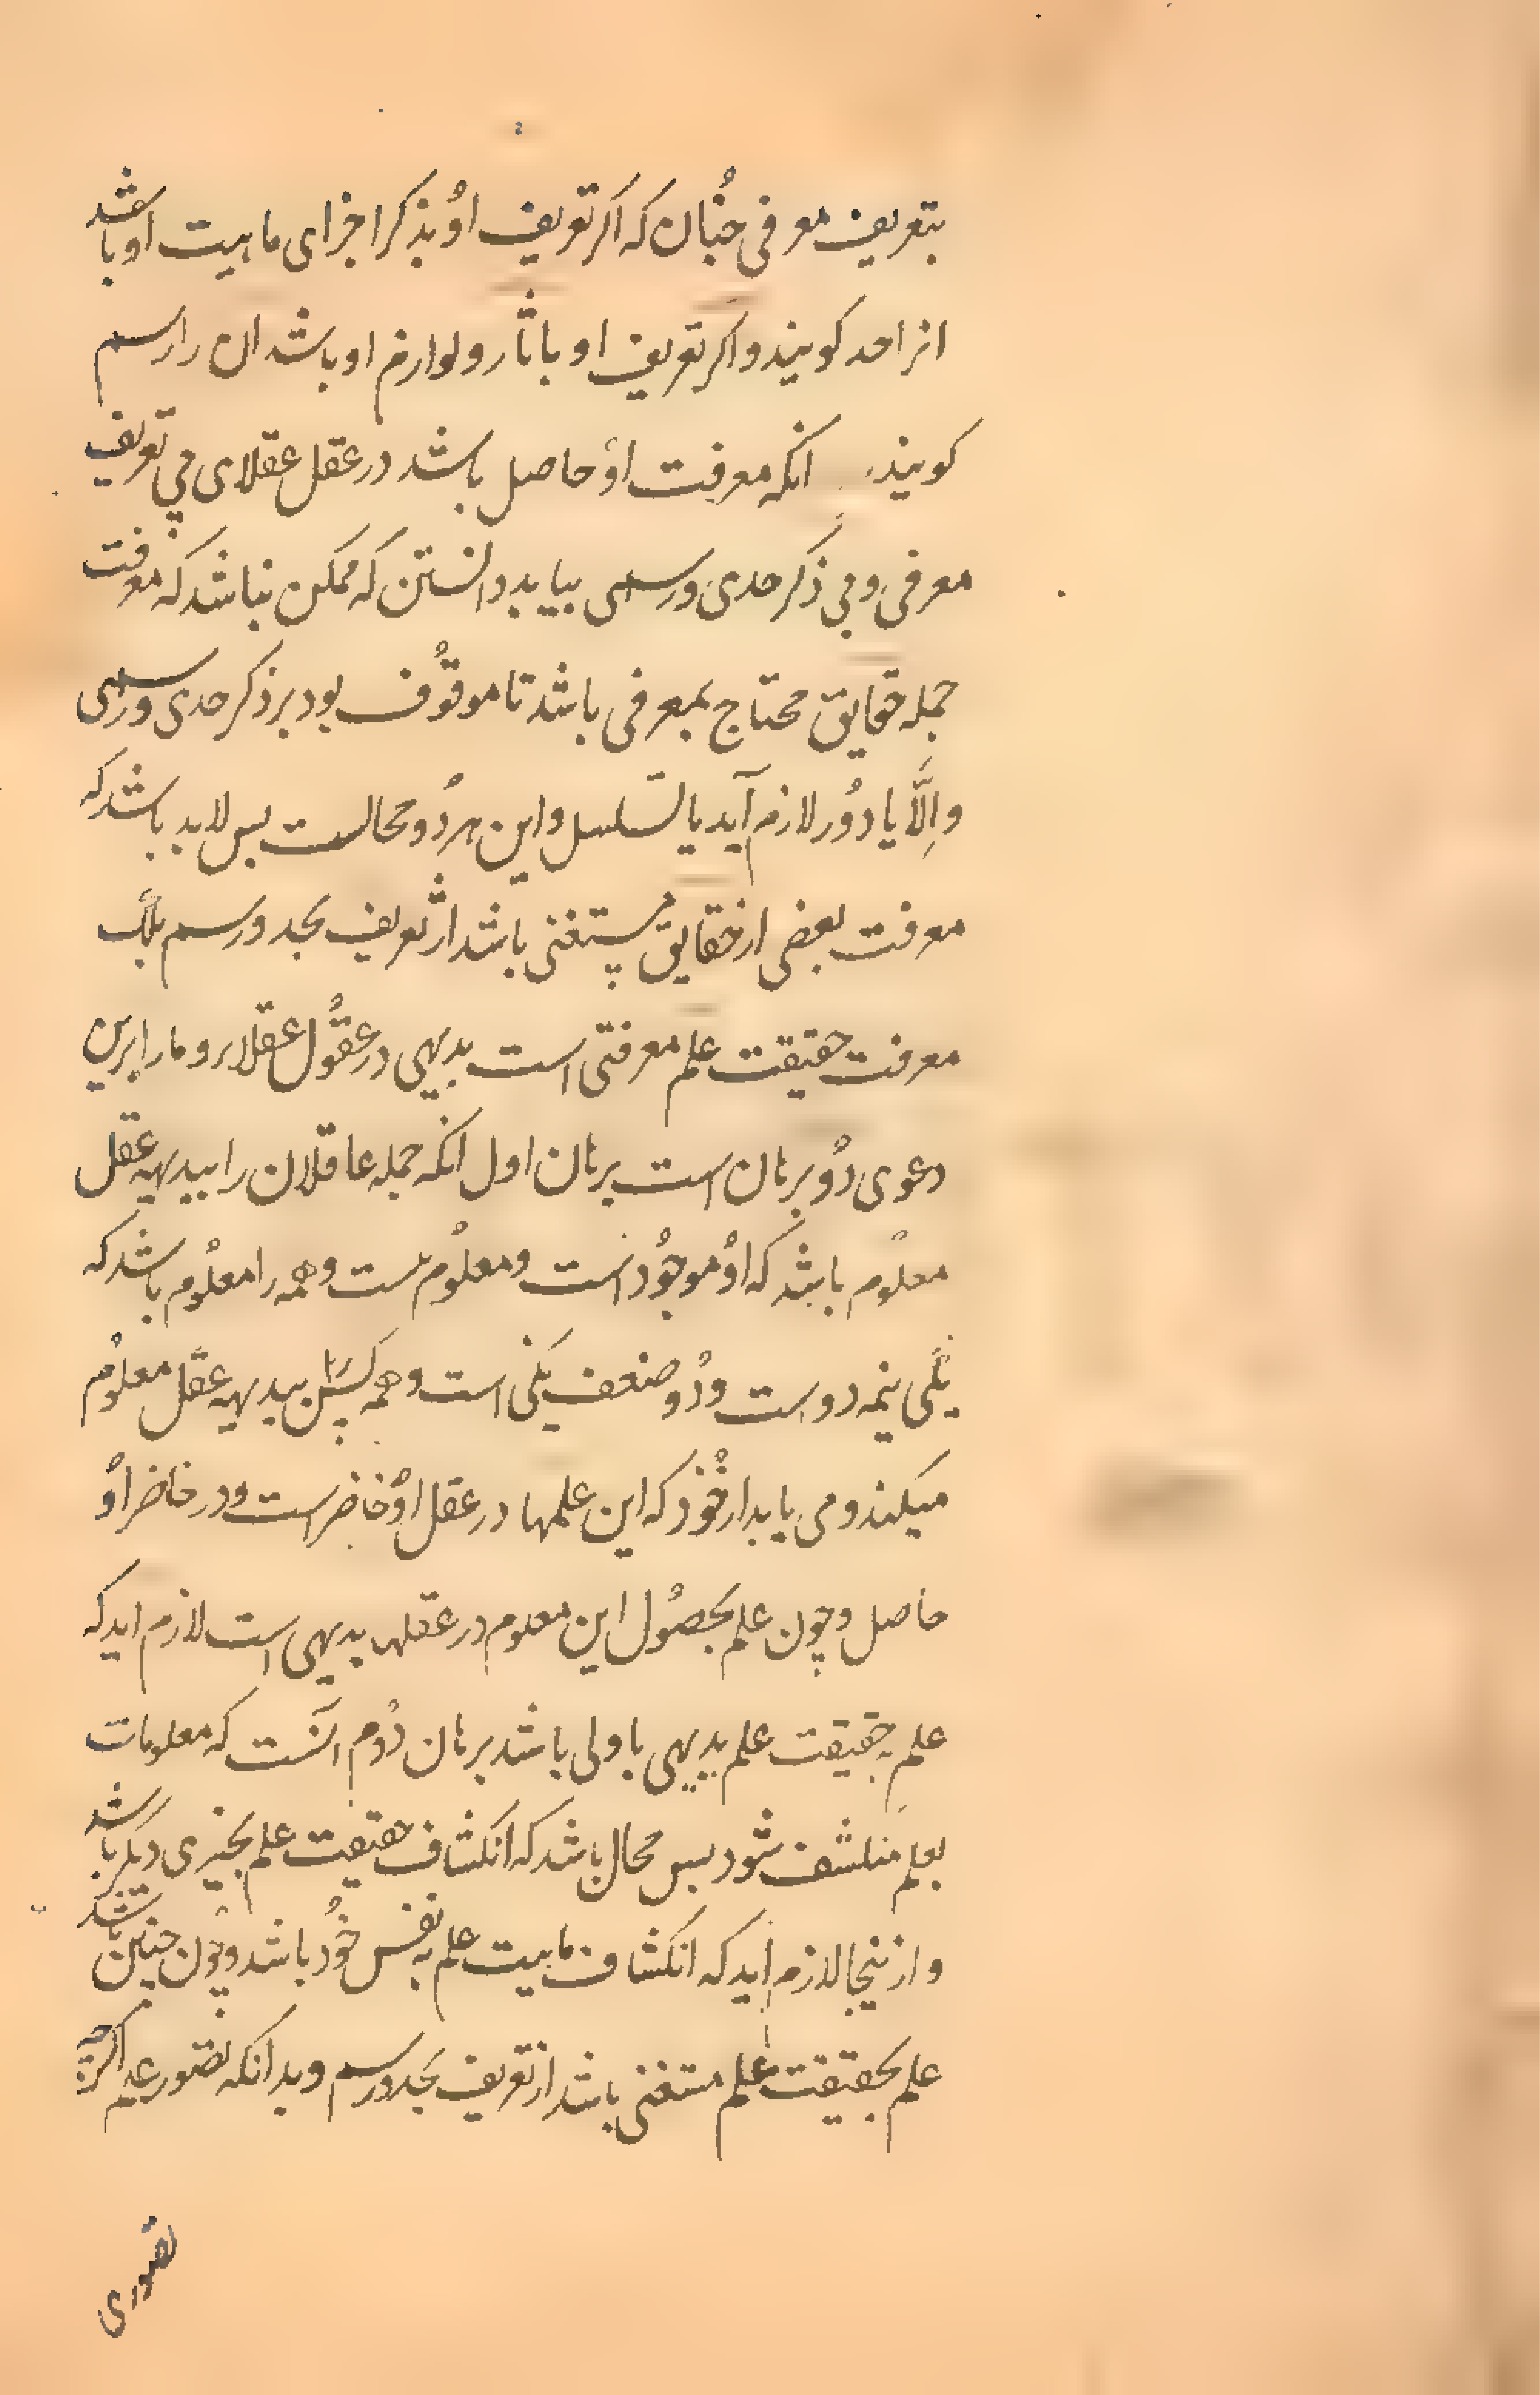 بتعریف معرفی چنان که اکر تعریف او بذکر اجزای ماهیت او باشد
انرا حد کویند و اکر تعریف او باثار و لوازم او باشد ان را رسم
کویند انکه معرفت او حاصل باشد در عقل عقلای بی تعریف
معرفی و بی ذکر حدی و رسمی بباید دانستن که ممکن نباشد که معرفت
جمله حقایق محتاج بمعرفی باشد تا موقوف بود بر ذکر حدی و رسمی
و اِلّا یا دور لازم آید یا تسلسل و این هر دو محالست بس لابد باشد که
معرفت بعضی از حقایق مستغنی باشد از تعریف بحد و رسم بلک
معرفت حقیقت علم معرفتی است بدیهی در عقول عقلا و ما را برین
دعوی دو برهان است برهان اول انکه جمله عاقلان را ببدیهه عقل
معلوم باشد که او موجود است و معلوم است و همه را معلوم باشد که
یکی نیمه دو است و دو ضعف یکی است و همه کس ببدیهه عقل معلوم
میکند و می یابد از خود که این علمها در عقل او حاضر است و در خاطر او
حاصل و چون علم بحصول این معلوم در عقلها بدیهی است لازم اید که
علم به حقیقت علم بدیهی باولی باشد برهان دوم انست که معلومات
بعلم منکشف شود بس محال باشد که انکشاف حقیقت علم بچیزی دیکر باشد
و ازینجا لازم اید که انکشاف ماهیت علم به نفس خود باشد و چون چنین باشد
علم بحقیقت علم مستغنی باشد از تعریف بحد و رسم و بدانکه تصور علم اکرچه
تصوری